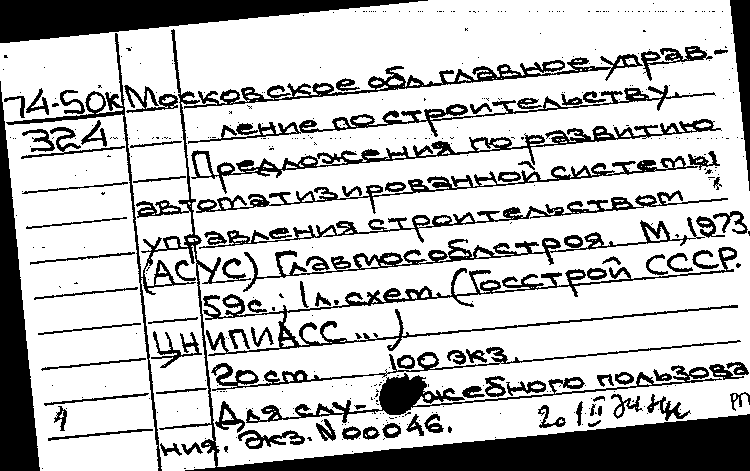 74-50к Московское обл. главное управ-
324 ление по строительству.
Предложения по развитию
автоматизированной системы
управления строительством
(АСУС) Главмособлстроя. М., 1973.
59с.; 1л. схем. (Госстрой СССР.
ЦНИПИАСС ...).
20 ст. 100 экз.
Для слу- жебного пользова
ния. Экз. N 00046.
4